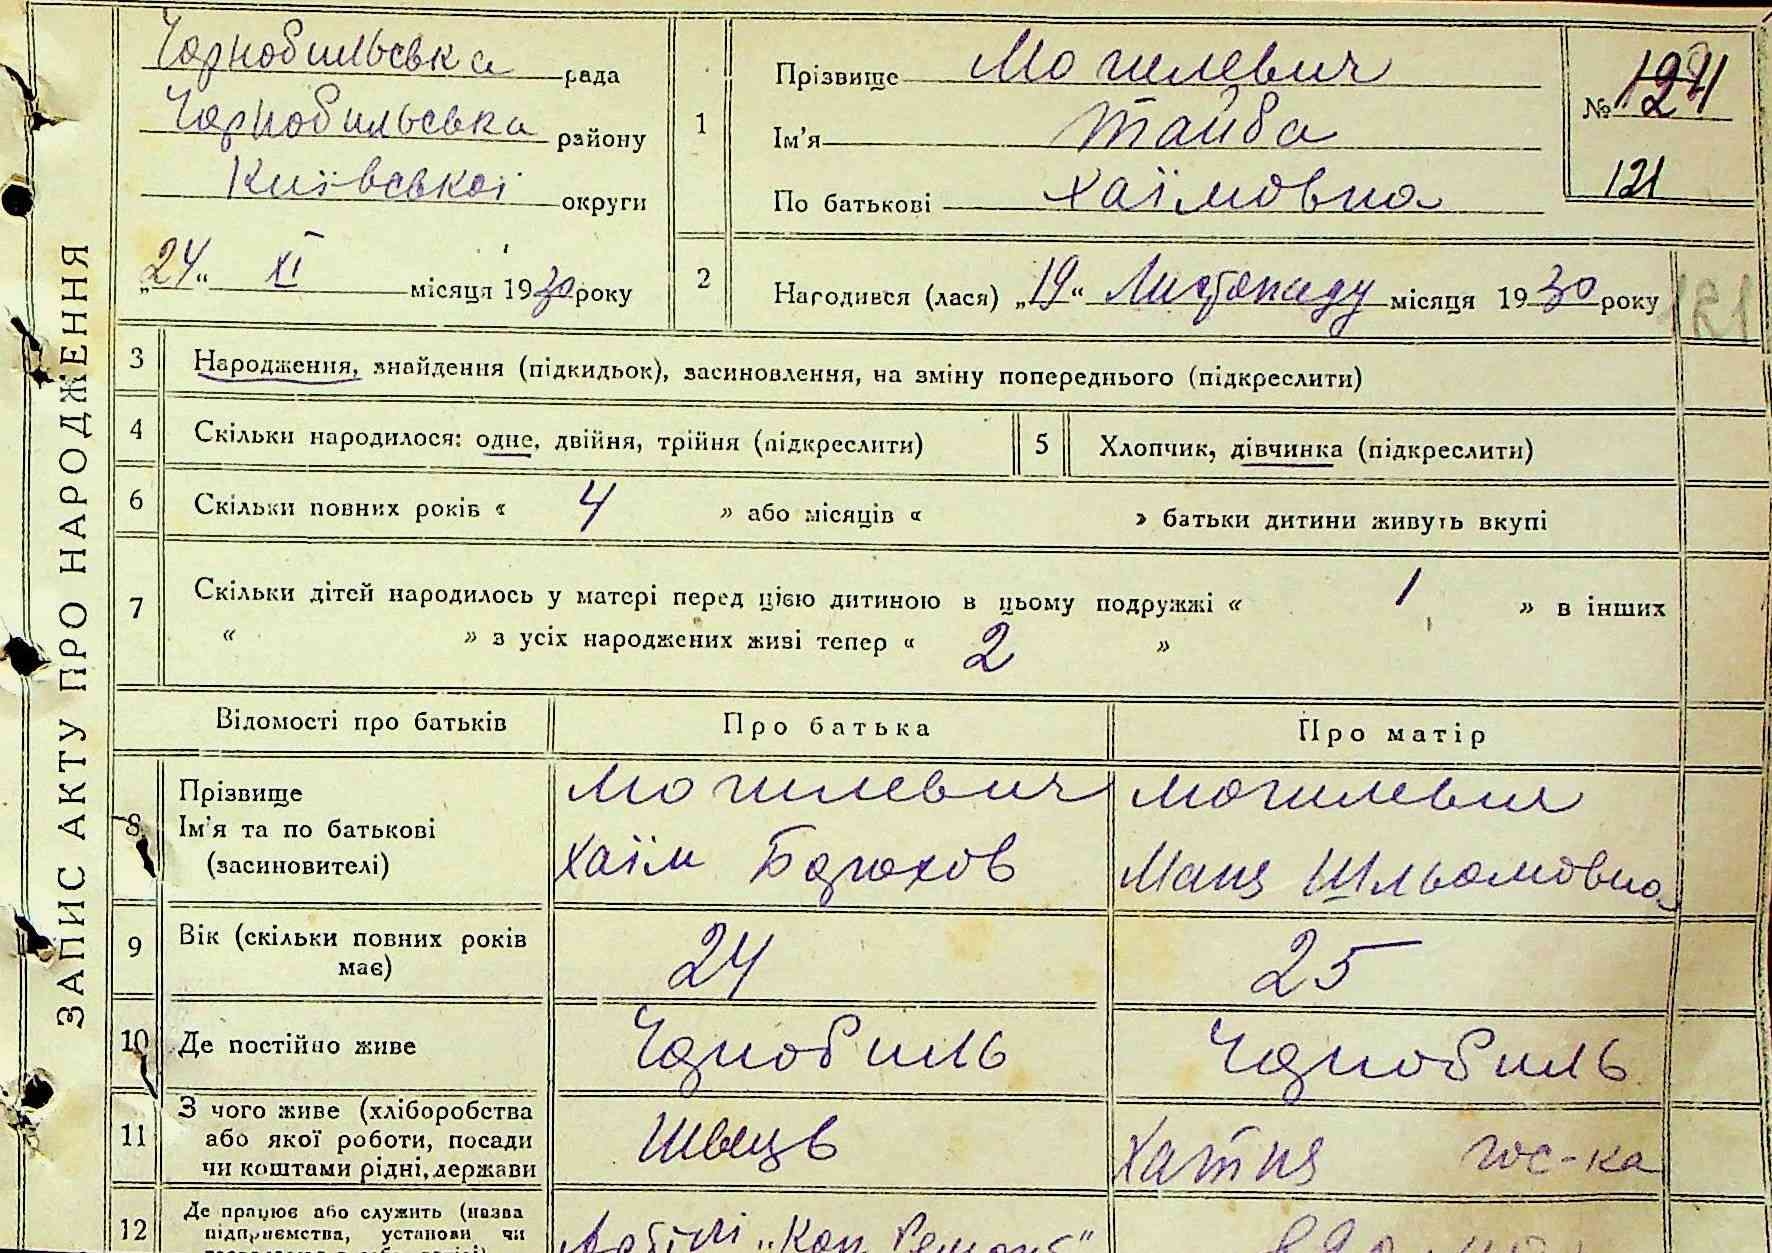 ЗАПИС АКТУ ПРО НАРОДЖЕННЯ
Чорнобильська рада
Чорнобильська району
Київської округи
„24“ XI місяця 1930 року
1
Прізвище Могилевич
Ім'я Тайба
По батькові Хаїмовна
№ 121
121
2
Народився (лася) „19“ Листопаду місяця 1930 року
121
3 Народження, знайдення (підкидьок), засиновлення, на зміну попереднього (підкреслити)
4 Скільки народилося: одне, двійня, трійня (підкреслити) 5 Хлопчик, дівчинка (підкреслити)
6 Скільки повних років « 4 » або місяців « » батьки дитини живуть вкупі
7 Скільки дітей народилось у матері перед цією дитиною в цьому подружжі « 1 » в інших
« » з усіх народжених живі тепер « 2 »
Відомості про батьків Про батька Про матір
8 Прізвище Могилевич Могилевич
Ім'я та по батькові Хаїм Борохов Маня Шльомовна
(засиновителі)
9 Вік (скільки повних років 24 25
має)
10 Де постійно живе Чорнобиль Чорнобиль
11 З чого живе (хліборобства
або якої роботи, посади Швець Хатня гос-ка
чи коштами рідні, держави
12 Де працює або служить (назва
підприємства, установи чи